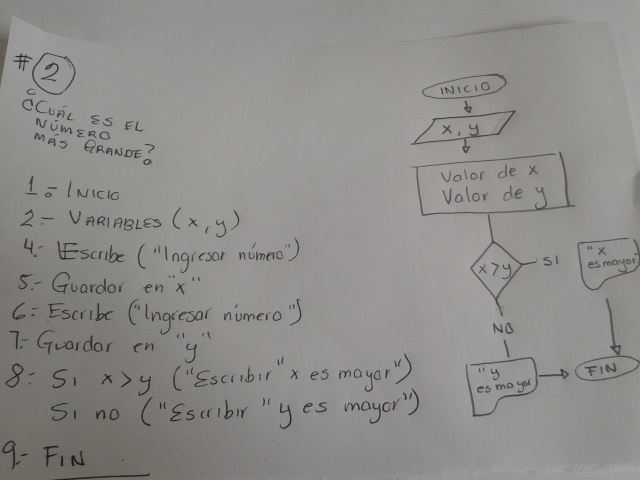 #2
¿CUÁL ES EL
NÚMERO
MÁS GRANDE?
1:- INICIO
2:- VARIABLES (x, y)
4:- Escribe ("Ingresar número")
5:- Guardar en "x"
6:- Escribe ("Ingresar número")
7:- Guardar en "y"
8:- Si x>y ("Escribir "x es mayor")
Si no ("Escribir "y es mayor")
9.- FIN
INICIO
x, y
Valor de x
Valor de y
x>y
SI
"x
es mayor
NO
"y
es mayor
FIN